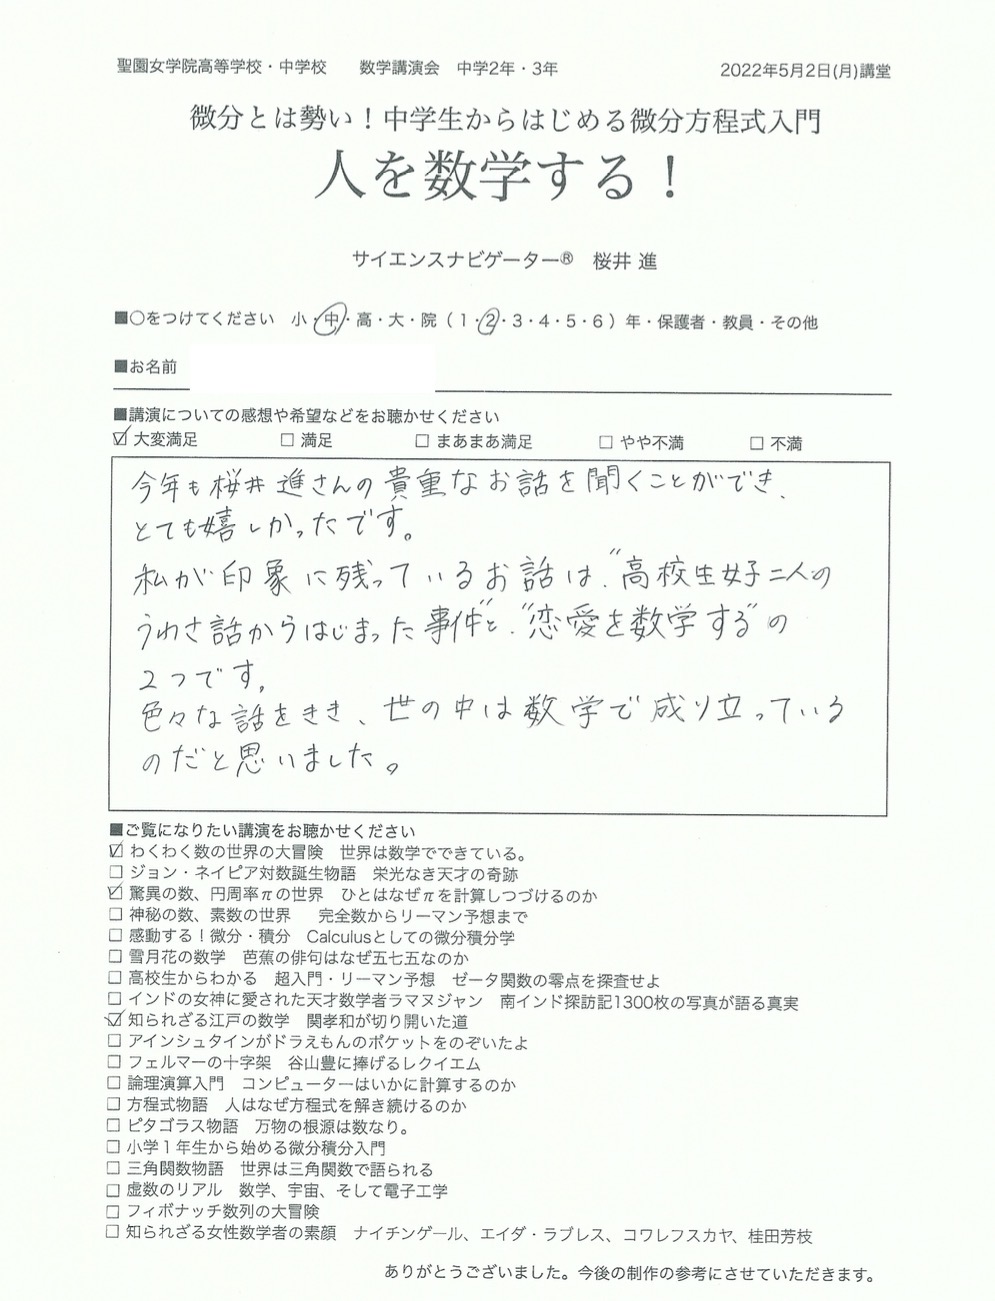 聖園女学院高等学校・中学校　数学講演会　中学2年・3年　2022年5月2日(月)講堂
微分とは勢い！中学生からはじめる微分方程式入門
人を数学する！
サイエンスナビゲーター®　桜井 進
■○をつけてください　小・中・高・大・院（1・2・3・4・5・6）年・保護者・教員・その他
■お名前
■講演についての感想や希望などをお聴かせください
☑ 大変満足　□ 満足　□ まあまあ満足　□ やや不満　□ 不満
今年も桜井進さんの貴重なお話を聞くことができ、
とても嬉しかったです。
私が印象に残っているお話は、“高校生女子二人の
うわさ話からはじまった事件”と、“恋愛を数学する”の
2つです。
色々な話をきき、世の中は数学で成り立っている
のだと思いました。
■ご覧になりたい講演をお聴かせください
☑ わくわく数の世界の大冒険　世界は数学でできている。
□ ジョン・ネイピア対数誕生物語　栄光なき天才の奇跡
☑ 驚異の数、円周率πの世界　ひとはなぜπを計算しつづけるのか
□ 神秘の数、素数の世界　完全数からリーマン予想まで
□ 感動する！微分・積分　Calculusとしての微分積分学
□ 雪月花の数学　芭蕉の俳句はなぜ五七五なのか
□ 高校生からわかる　超入門・リーマン予想　ゼータ関数の零点を探査せよ
□ インドの女神に愛された天才数学者ラマヌジャン　南インド探訪記1300枚の写真が語る真実
☑ 知られざる江戸の数学　関孝和が切り開いた道
□ アインシュタインがドラえもんのポケットをのぞいたよ
□ フェルマーの十字架　谷山豊に捧げるレクイエム
□ 論理演算入門　コンピューターはいかに計算するのか
□ 方程式物語　人はなぜ方程式を解き続けるのか
□ ピタゴラス物語　万物の根源は数なり。
□ 小学1年生から始める微分積分入門
□ 三角関数物語　世界は三角関数で語られる
□ 虚数のリアル　数学、宇宙、そして電子工学
□ フィボナッチ数列の大冒険
□ 知られざる女性数学者の素顔　ナイチンゲール、エイダ・ラブレス、コワレフスカヤ、桂田芳枝
ありがとうございました。今後の制作の参考にさせていただきます。